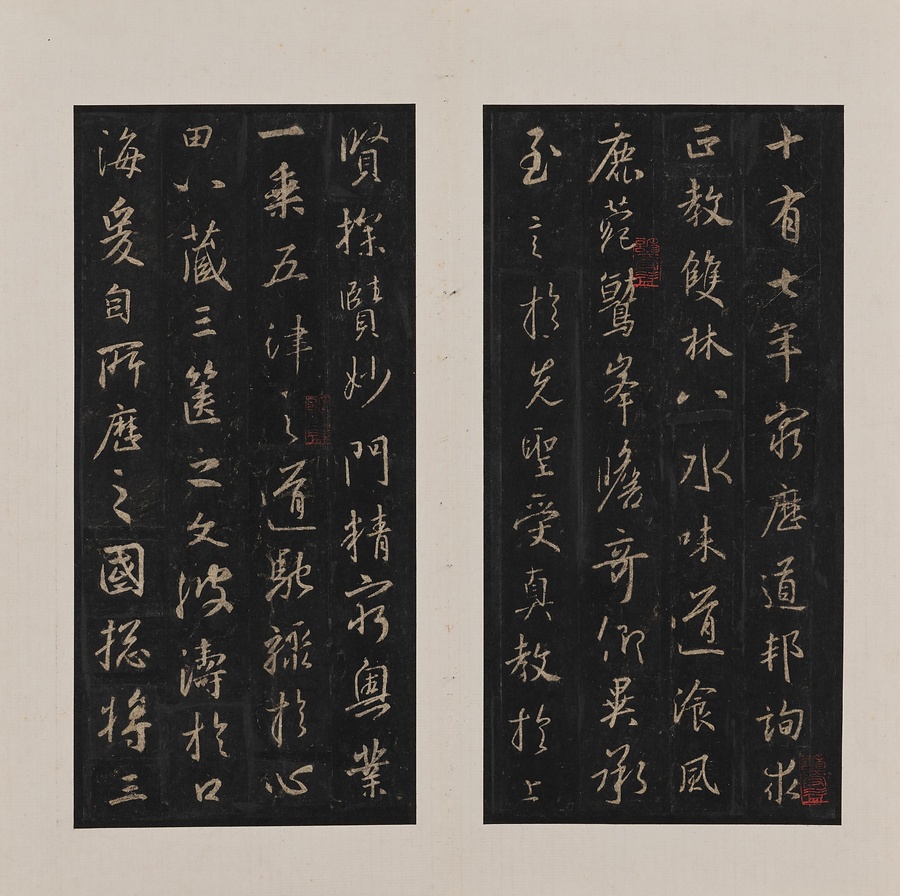 十有七年窮歷道邦詢求
正教雙林八水味道飡風
鹿菀鷲峯瞻奇仰異承
至言於先聖受真教於上
賢探賾妙門精窮奧業
一乘五律之道馳驟於心
田八藏三篋之文波濤於口
海爰自所歷之國揔將三